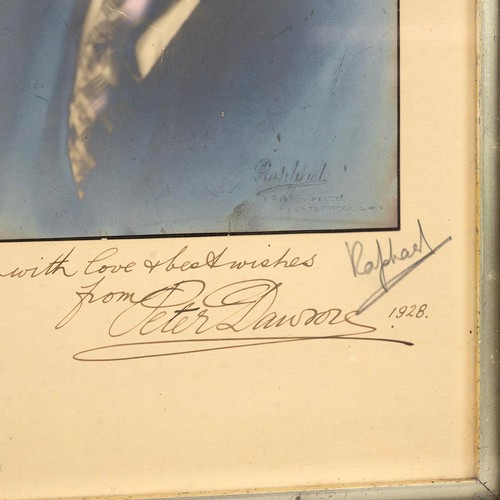 Raphael
with love & best wishes
from Peter Dawson
1928.
Raphael